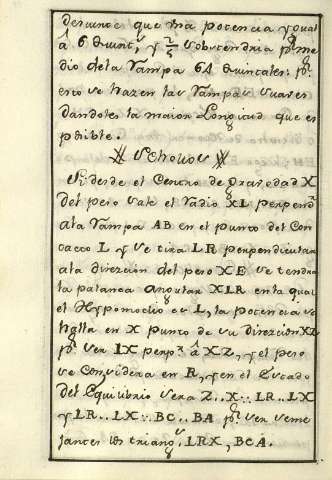 descuvre que vna potencia ygual
â 6 quint.s y 2/5 sobstendria p.r me
dio dela rampa 64 quintales: p.r
esto se hazen las rampas suaves
dandoles la maior Longitud que es
posible.
Scholios
Si desde el Centro de gravedad X
del peso sale el radio XL perpend.r
ala rampa AB en el punto del Con
tacto L y se tira LR perpendicular
ala direzion del peso XE se tendra
la palanca angular XLR en la qual
el Hypomoclio es L, la potencia se
halla en X punto de su direzion XZ
p.r ser LX perp.r â XZ, y el peso
se Considera en R, y en el Estado
del Equilibrio sera Z..X:: LR..LX
y LR..LX:: BC..BA p.r ser seme
jantes los triang.s LRX, BCA.